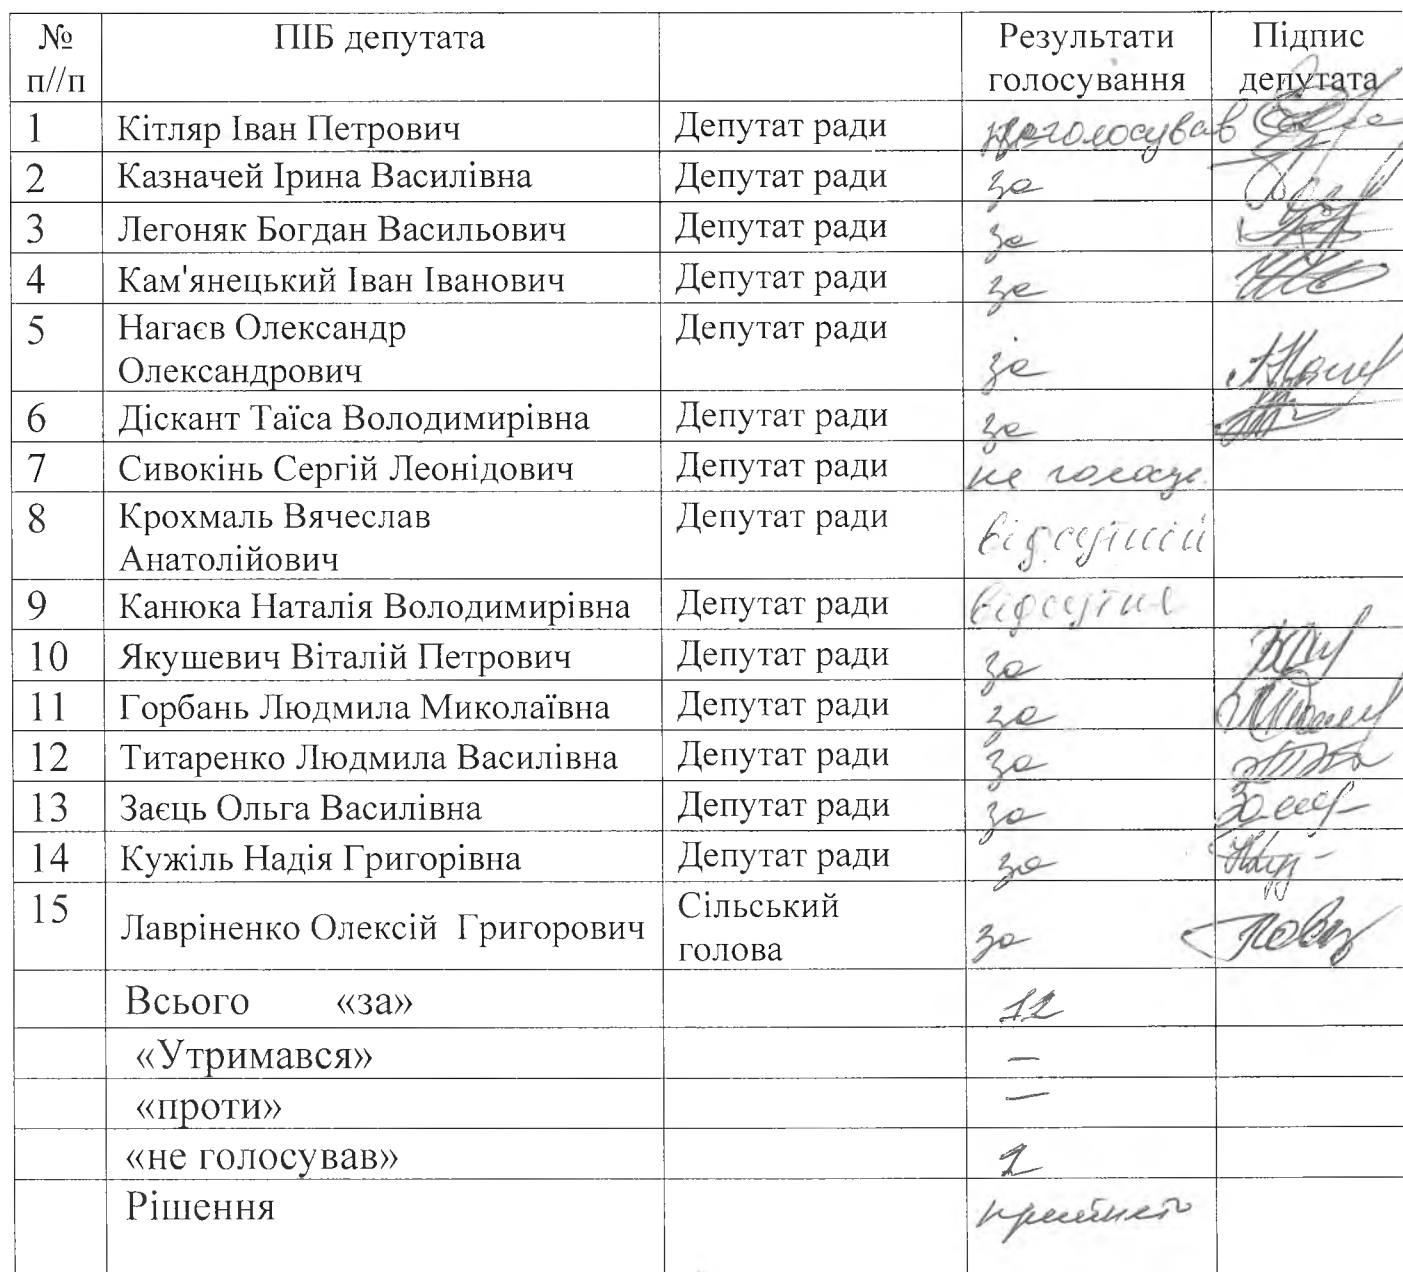 № п//п ПІБ депутата Результати голосування Підпис депутата
1 Кітляр Іван Петрович Депутат ради не голосував
2 Казначей Ірина Василівна Депутат ради за
3 Легоняк Богдан Васильович Депутат ради за
4 Кам'янецький Іван Іванович Депутат ради за
5 Нагаєв Олександр Депутат ради
Олександрович за
6 Діскант Таїса Володимирівна Депутат ради за
7 Сивокінь Сергій Леонідович Депутат ради не голосув.
8 Крохмаль Вячеслав Депутат ради
Анатолійович відсутній
9 Канюка Наталія Володимирівна Депутат ради відсутня
10 Якушевич Віталій Петрович Депутат ради за
11 Горбань Людмила Миколаївна Депутат ради за
12 Титаренко Людмила Василівна Депутат ради за
13 Заєць Ольга Василівна Депутат ради за
14 Кужіль Надія Григорівна Депутат ради за
15 Лавріненко Олексій Григорович Сільський голова за
Всього «за» 12
«Утримався» —
«проти» —
«не голосував»
Рішення прийнято